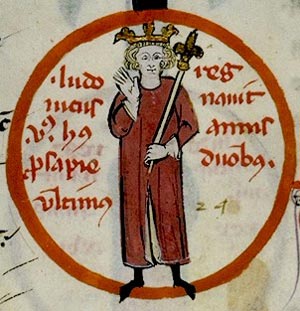 .ludo
uicus
.v9. h9
psapie
vltim9
reg
nauit
annis
duob9.
24